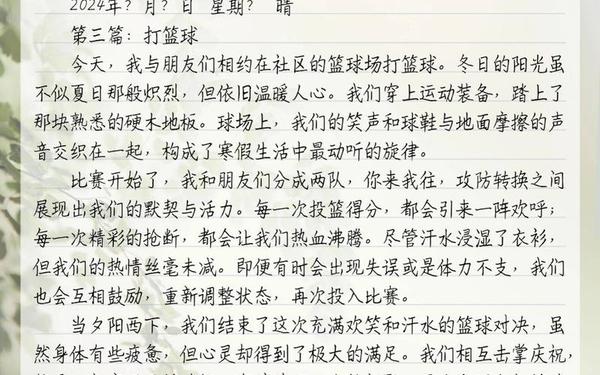 2024年?月?日 星期? 晴
第三篇：打篮球
今天，我与朋友们相约在社区的篮球场打篮球。冬日的阳光虽
不似夏日那般炽烈，但依旧温暖人心。我们穿上运动装备，踏上了
那块熟悉的硬木地板。球场上，我们的笑声和球鞋与地面摩擦的声
音交织在一起，构成了寒假生活中最动听的旋律。
比赛开始了，我和朋友们分成两队，你来我往，攻防转换之间
展现出我们的默契与活力。每一次投篮得分，都会引来一阵欢呼；
每一次精彩的抢断，都会让我们热血沸腾。尽管汗水浸湿了衣衫，
但我们的热情丝毫未减。即便有时会出现失误或是体力不支，我们
也会互相鼓励，重新调整状态，再次投入比赛。
当夕阳西下，我们结束了这次充满欢笑和汗水的篮球对决，虽
然身体有些疲惫，但心灵却得到了极大的满足。我们相互击掌庆祝，